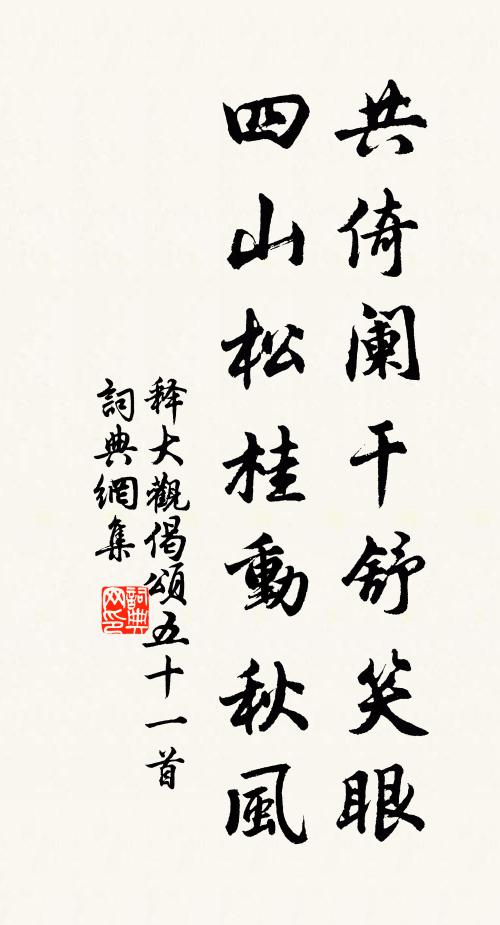 共倚阑干舒笑眼
四山松桂動秋風
释大觀偈頌五十一首
詞典網集
詞典网印